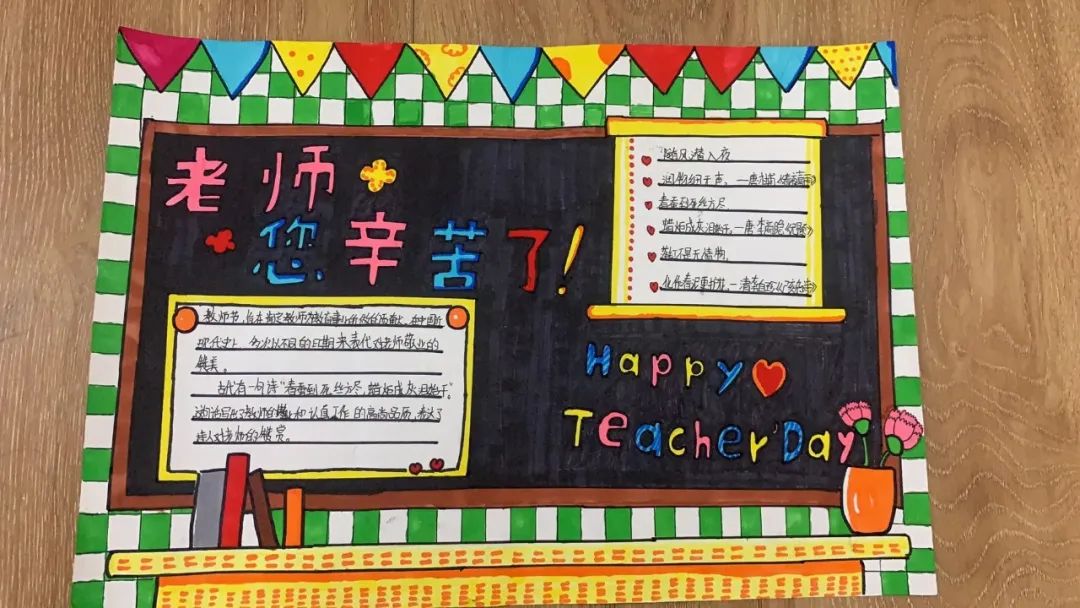 老师
您辛苦了!
随风潜入夜
润物细无声。—唐·杜甫《春夜喜雨》
春蚕到死丝方尽
蜡炬成灰泪始干。—唐·李商隐《无题》
落红不是无情物,
化作春泥更护花。—清·龚自珍《己亥杂诗》
教师节,旨在肯定教师为教育事业所做的贡献。在中国近
现代史上,多次以不同的日期来表代对老师敬业的
赞美。
古代有一句诗"春蚕到死丝方尽,蜡炬成灰泪始干"。
这句话写了教师的和认真工作的高尚品质,表达了
诗人对老师的赞赏。
Happy
Teacher'Day